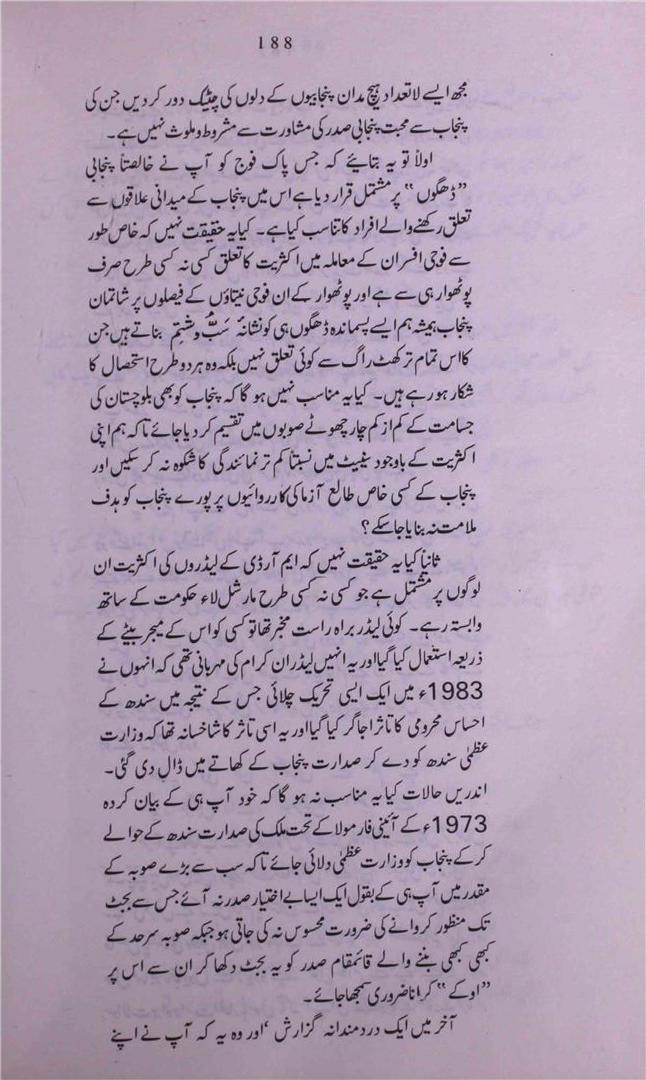 188
مجھ ایسے لاتعداد ہیچ مدان پنجابیوں کے دلوں کی چیٹیک دور کر دیں جن کی
پنجاب سے محبت پنجابی صدر کی مشاورت سے مشروط و ملوث نہیں ہے۔
اولاً تو یہ بتائیے کہ جس پاک فوج کو آپ نے خالصتاً پنجابی
”ڈھگوں“ پر مشتمل قرار دیا ہے اس میں پنجاب کے میدانی علاقوں سے
تعلق رکھنے والے افراد کا تناسب کیا ہے۔ کیا یہ حقیقت نہیں کہ خاص طور
سے فوجی افسران کے معاملہ میں اکثریت کا تعلق کسی نہ کسی طرح صرف
پوٹھوار ہی سے ہے اور پوٹھوار کے ان فوجی نیتاؤں کے فیصلوں پر شاتمان
پنجاب ہمیشہ ہم ایسے پسماندہ ڈھگوں ہی کو نشانہ سبّ و شتم بناتے ہیں جن
کا اس تمام تر کھٹ راگ سے کوئی تعلق نہیں بلکہ وہ ہر دو طرح استحصال کا
شکار ہو رہے ہیں۔ کیا یہ مناسب نہیں ہو گا کہ پنجاب کو بھی بلوچستان کی
جسامت کے کم از کم چار چھوٹے صوبوں میں تقسیم کر دیا جائے تاکہ ہم اپنی
اکثریت کے باوجود سینیٹ میں نسبتاً کم تر نمائندگی کا شکوہ نہ کر سکیں اور
پنجاب کے کسی خاص طالع آزما کی کارروائیوں پر پورے پنجاب کو ہدف
ملامت نہ بنایا جا سکے؟
ثانیاً کیا یہ حقیقت نہیں کہ ایم آر ڈی کے لیڈروں کی اکثریت ان
لوگوں پر مشتمل ہے جو کسی نہ کسی طرح مارشل لاء حکومت کے ساتھ
وابستہ رہے۔ کوئی لیڈر براہ راست مخبر تھا تو کسی کو اس کے میجر بیٹے کے
ذریعہ استعمال کیا گیا اور یہ انہیں لیڈران کرام کی مہربانی تھی کہ انہوں نے
1983ء میں ایک ایسی تحریک چلائی جس کے نتیجہ میں سندھ کے
احساس محرومی کا تاثر اجاگر کیا گیا اور یہ اسی تاثر کا شاخسانہ تھا کہ وزارت
عظمیٰ سندھ کو دے کر صدارت پنجاب کے کھاتے میں ڈال دی گئی۔
اندریں حالات کیا یہ مناسب نہ ہو گا کہ خود آپ ہی کے بیان کردہ
1973ء کے آئینی فارمولا کے تحت ملک کی صدارت سندھ کے حوالے
کر کے پنجاب کو وزارت عظمیٰ دلائی جائے تاکہ سب سے بڑے صوبہ کے
مقدر میں آپ ہی کے بقول ایک ایسا بے اختیار صدر نہ آئے جس سے بجٹ
تک منظور کروانے کی ضرورت محسوس نہ کی جاتی ہو جبکہ صوبہ سرحد کے
کبھی کبھی بننے والے قائمقام صدر کو یہ بجٹ دکھا کر ان سے اس پر
”اوکے“ کرانا ضروری سمجھا جائے۔
آخر میں ایک دردمندانہ گزارش ‘ اور وہ یہ کہ آپ نے اپنے